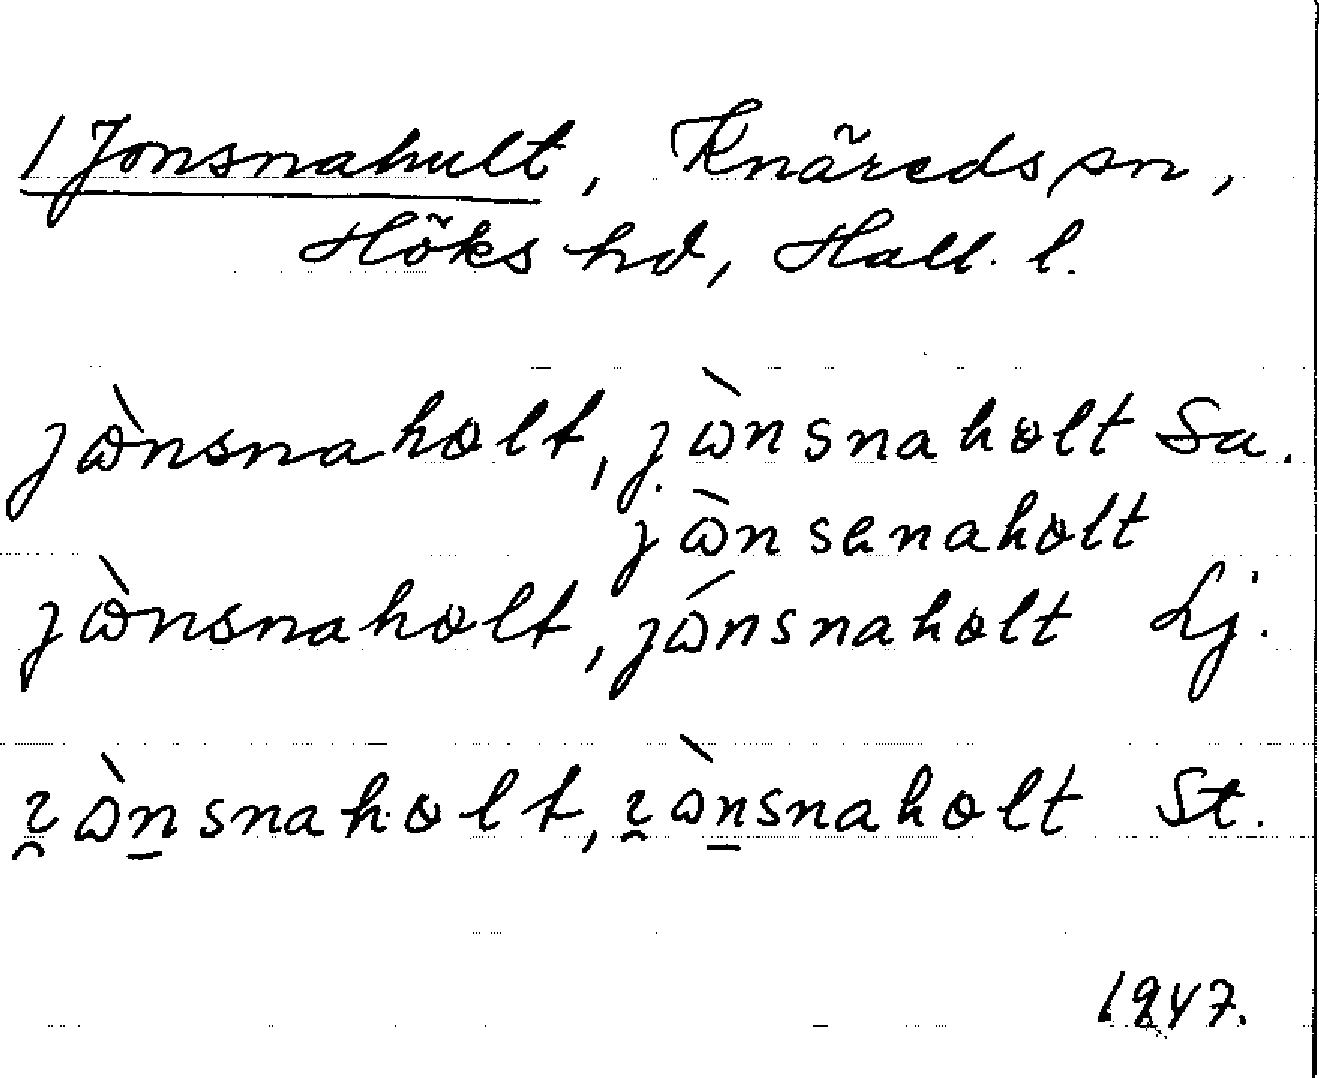 / Jonsnahult, Knäreds sn,
Höks hd, Hall. l.
jɷ̀nsnahɵlt, jɷ̀nsnahɵlt Sa.
jɷ̀nsenahɵlt
jɷ̀nsnahɵlt, jɷ́nsnahɵlt Lj.
ɷ̀n̲snahɵlt, ɷ̀n̲snahɵlt St.
1947.